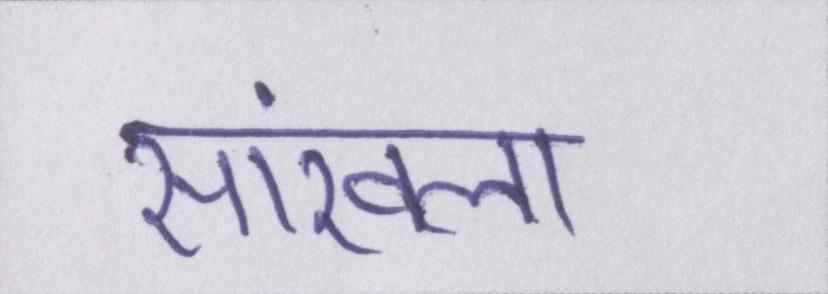 सांखला